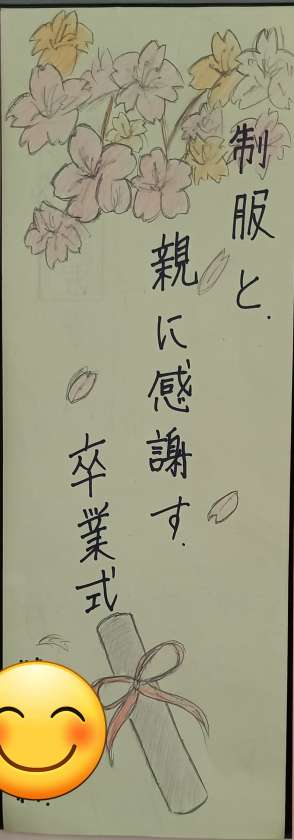 制服と、
親に感謝す、
卒業式